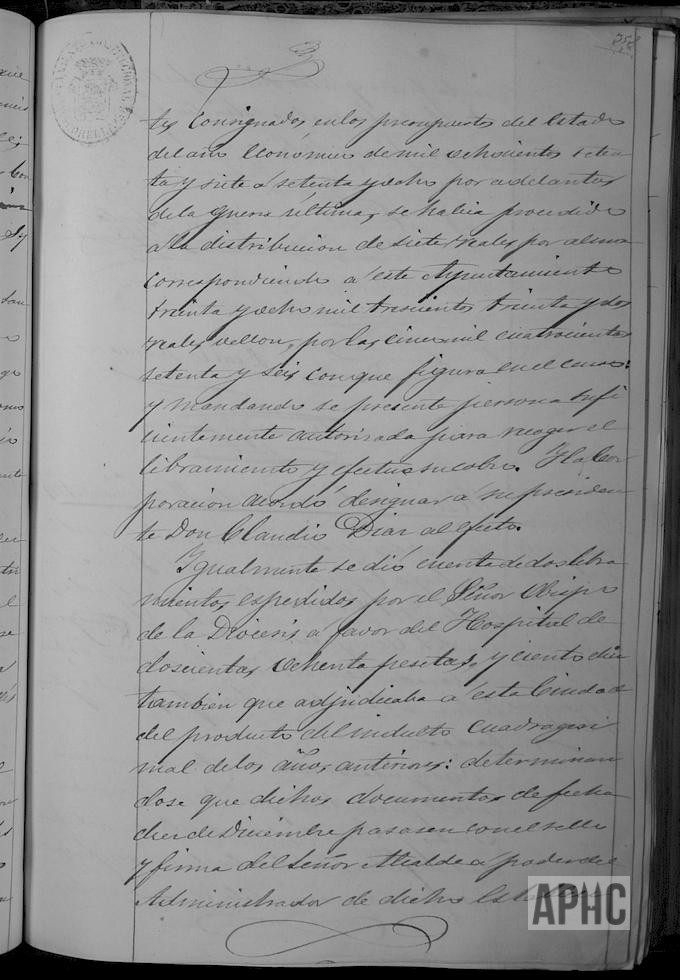 358
tes Consignados en los presupuestos del Estado
del año Económico de mil ochocientos seten
ta y siete á setenta y ocho por adelantos
de la guerra última, se había procedido
á la distribucion de siete reales por alma
correspondiendo á este Ayuntamiento
treinta y ocho mil trescientos treinta y dos
reales vellon, por las cinco mil cuatrocientas
setenta y seis con que figura en el censo:
y mandando se presente persona sufi
cientemente autorizada para recoger el
libramiento y efectue su cobro. La Cor
poracion acordó designar á su presiden
te Don Claudio Diaz al efecto.
Igualmente se dió cuenta de dos libra
mientos espedidos por el Señor Obispo
de la Diocesis á favor del Hospital de
doscientas ochenta pesetas, y ciento diez
tambien que adjudicaba á esta Ciudad
del producto del indulto cuadragesi
mal de los años anteriores: determinan
dose que dichos documentos de fecha
diez de Diciembre pasasen con el sello
y firma del Señor Alcalde á poder del
Administrador de dicho
APHC